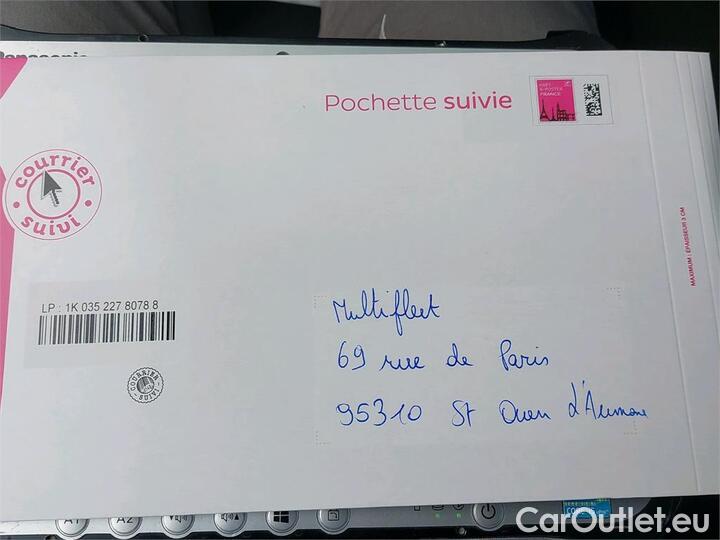 Panasonic
Pochette suivie
PRÊT-À-POSTER
FRANCE
courrier
suivi
MAXIMUM : EPAISSEUR 3 CM
LP : 1K 035 227 8078 8
COURRIER
SUIVI
Multifleet
69 rue de Paris
95310 St Ouen L'Aumone
A1
A2
CarOutlet.eu